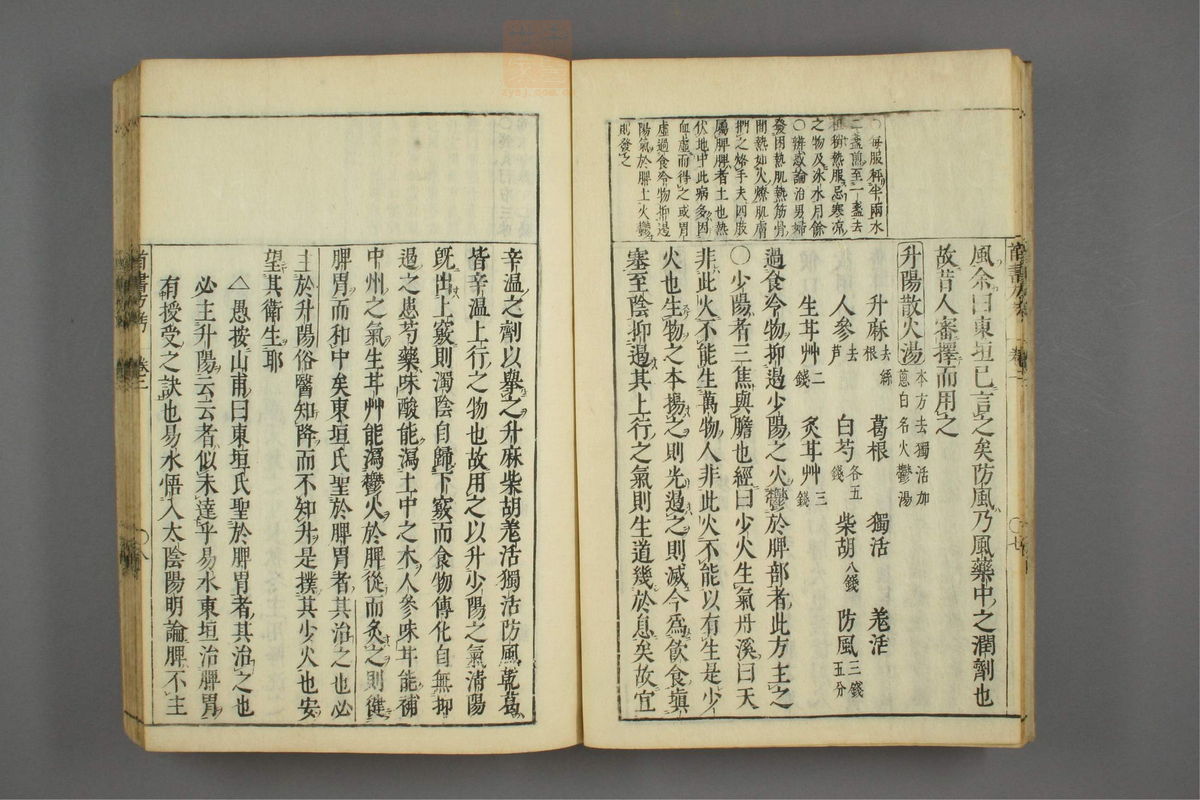 〇每服稱半兩水
二盞煎至一盞去
柤稍熱服忌寒涼
之物及氷水月餘
〇辨惑論治男婦
發困熱肌熱筋骨
間熱如火燎肌膚
捫之烙手夫四肢
屬脾脾者土也熱
伏地中此病多因
血虛而得之或胃
虛過食冷物抑遏
陽氣於脾土火鬱
則發之
風余曰東垣已言之矣防風乃風藥中之潤劑也
故昔人審擇而用之
升陽散火湯 本方去獨活加蔥白名火鬱湯
升麻去絲根 葛根 獨活 羗活
人參去芦 白芍各五錢 柴胡八錢 防風三錢五分
生耳艸二錢 炙耳艸三錢
過食冷物抑遏少陽之火鬱於脾部者此方主之
〇少陽者三焦與膽也經曰少火生氣丹溪曰天
非此火不能生萬物人非此火不能以有生是少
火也生物之本揚之則光遏之則減今爲飲食塡
塞至陰抑遏其上行之氣則生道幾於息矣故宜
辛溫之劑以舉之升麻柴胡羗活獨活防風乾葛
皆辛溫上行之物也故用之以升少陽之氣清陽
旣出上竅則濁陰自歸下竅而食物傳化自無抑
遏之患芍藥味酸能瀉土中之木人參味耳能補
中州之氣生耳艸能瀉鬱火於脾從而炙之則健
脾胃而和中矣東垣氏聖於脾胃者其治之也必
主於升陽俗醫知降而不知升是撲其少火也安
望其衛生耶
△愚按山甫曰東垣氏聖於脾胃者其治之也
必主升陽云云者似未達乎易水東垣治脾胃
有授受之訣也易水悟入太陰陽明論脾不主
醫書方考 卷三 〇七
醫書方考 卷三 〇八